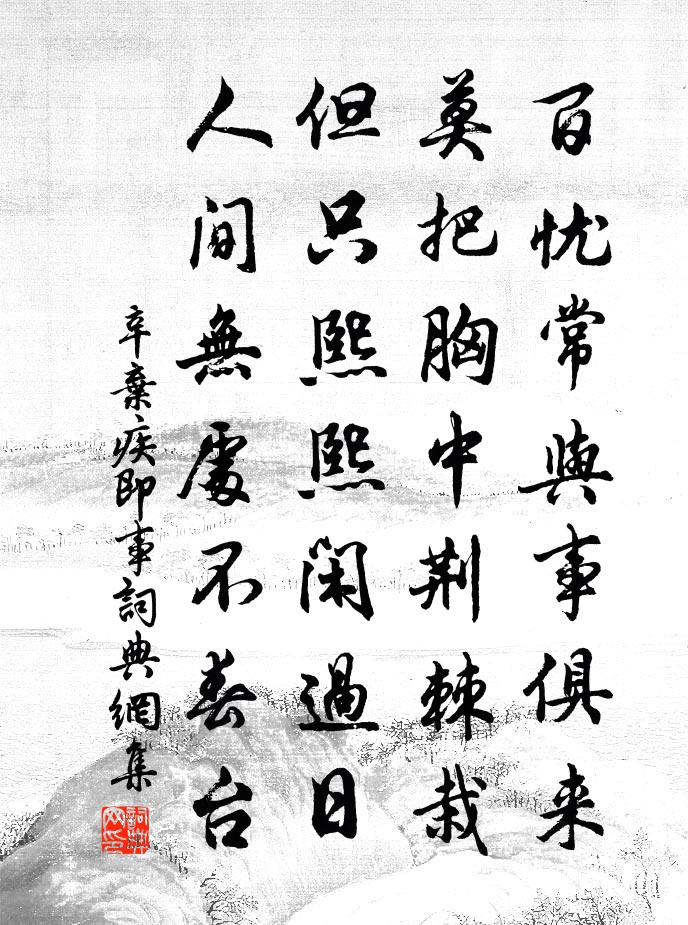 百忧常與事俱来
莫把胸中荆棘栽
但只熙熙闲過日
人间無處不春台
辛棄疾即事詞典網集